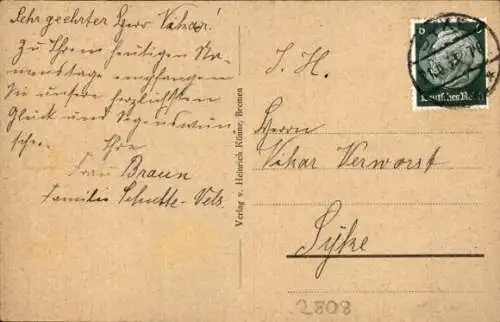 Sehr geehrter Herr Vikar!
Zu Ihrem heutigen Na-
menstage empfangen
Sie unsere herzlichsten
Glück und Segenswün-
sche. Ihre
Frau Braun
Familie Schutte-Vels.
Verlag v. Heinrich Künne, Bremen
S. H.
Herrn
Vikar Verworst
Syke
2808
6
Deutsches Reich